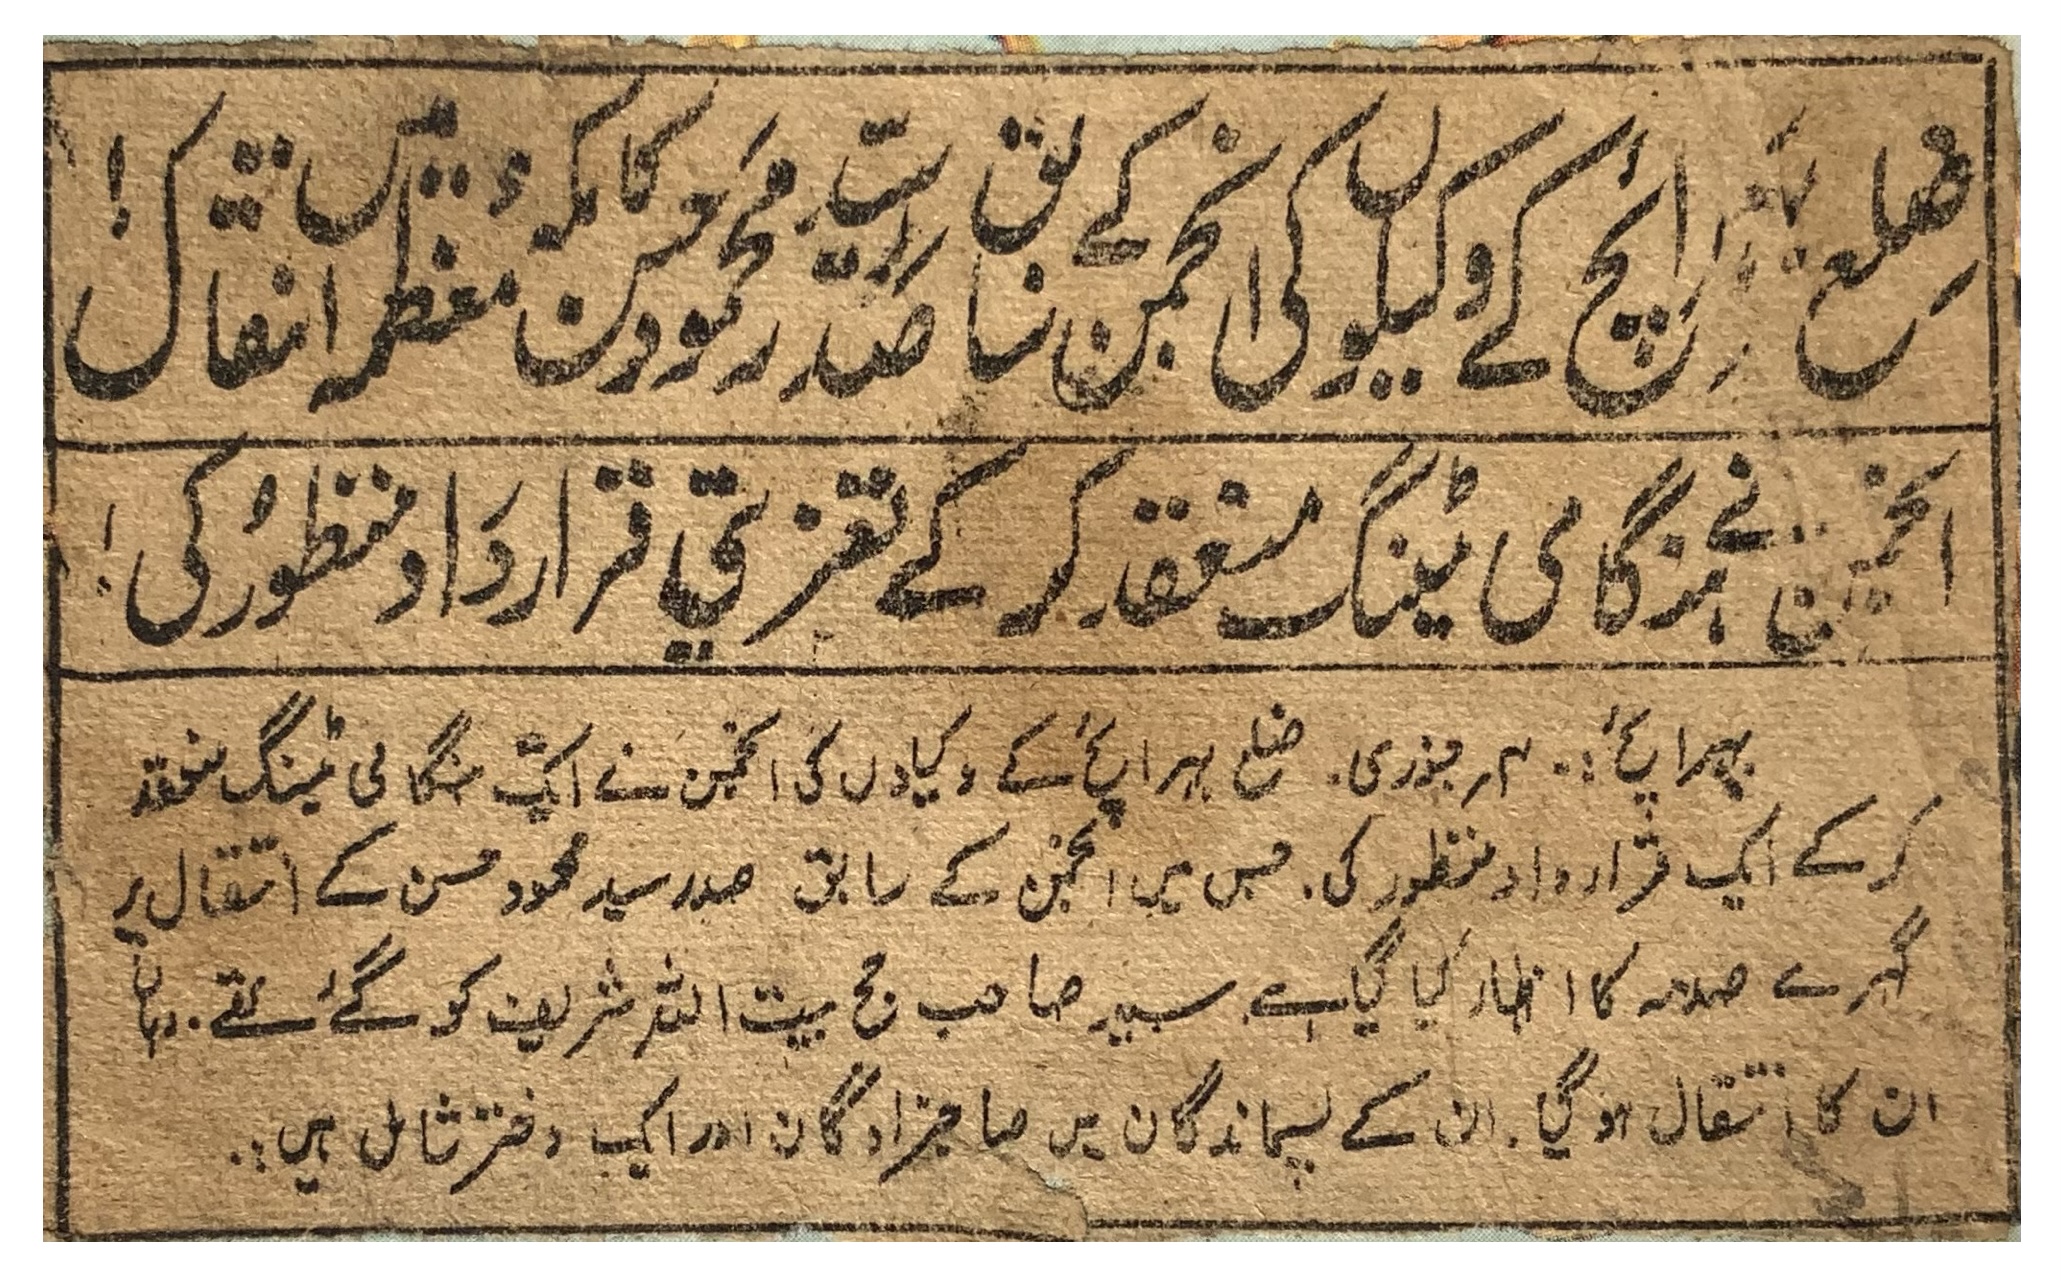 ضلع بہرائچ کے وکیلوں کی انجمن کے سابق صدر سید محمود حسن کا مکہ معظمہ میں انتقال!
انجمن نے ہنگامی میٹنگ منعقد کر کے تعزیتی قرارداد منظور کی!
بہرائچ:۔ ۴ر جنوری۔ ضلع بہرائچ کے وکیلوں کی انجمن نے ایک ہنگامی میٹنگ منعقد
کر کے ایک قرارداد منظور کی۔ جس میں انجمن کے سابق صدر سید محمود حسن کے انتقال پر
گہرے صدمہ کا اظہار کیا گیا ہے۔ سید صاحب حج بیت اللہ شریف کو گئے تھے۔ وہاں
ان کا انتقال ہو گیا۔ ان کے پسماندگان میں صاحبزادگان اور ایک دختر شامل ہیں:۔